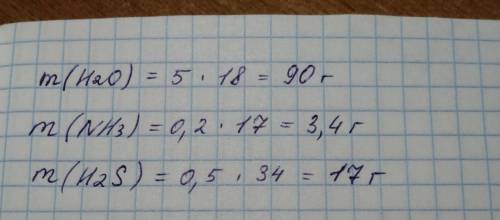 m(H2O) = 5 · 18 = 90 г
m(NH3) = 0,2 · 17 = 3,4 г
m(H2S) = 0,5 · 34 = 17 г